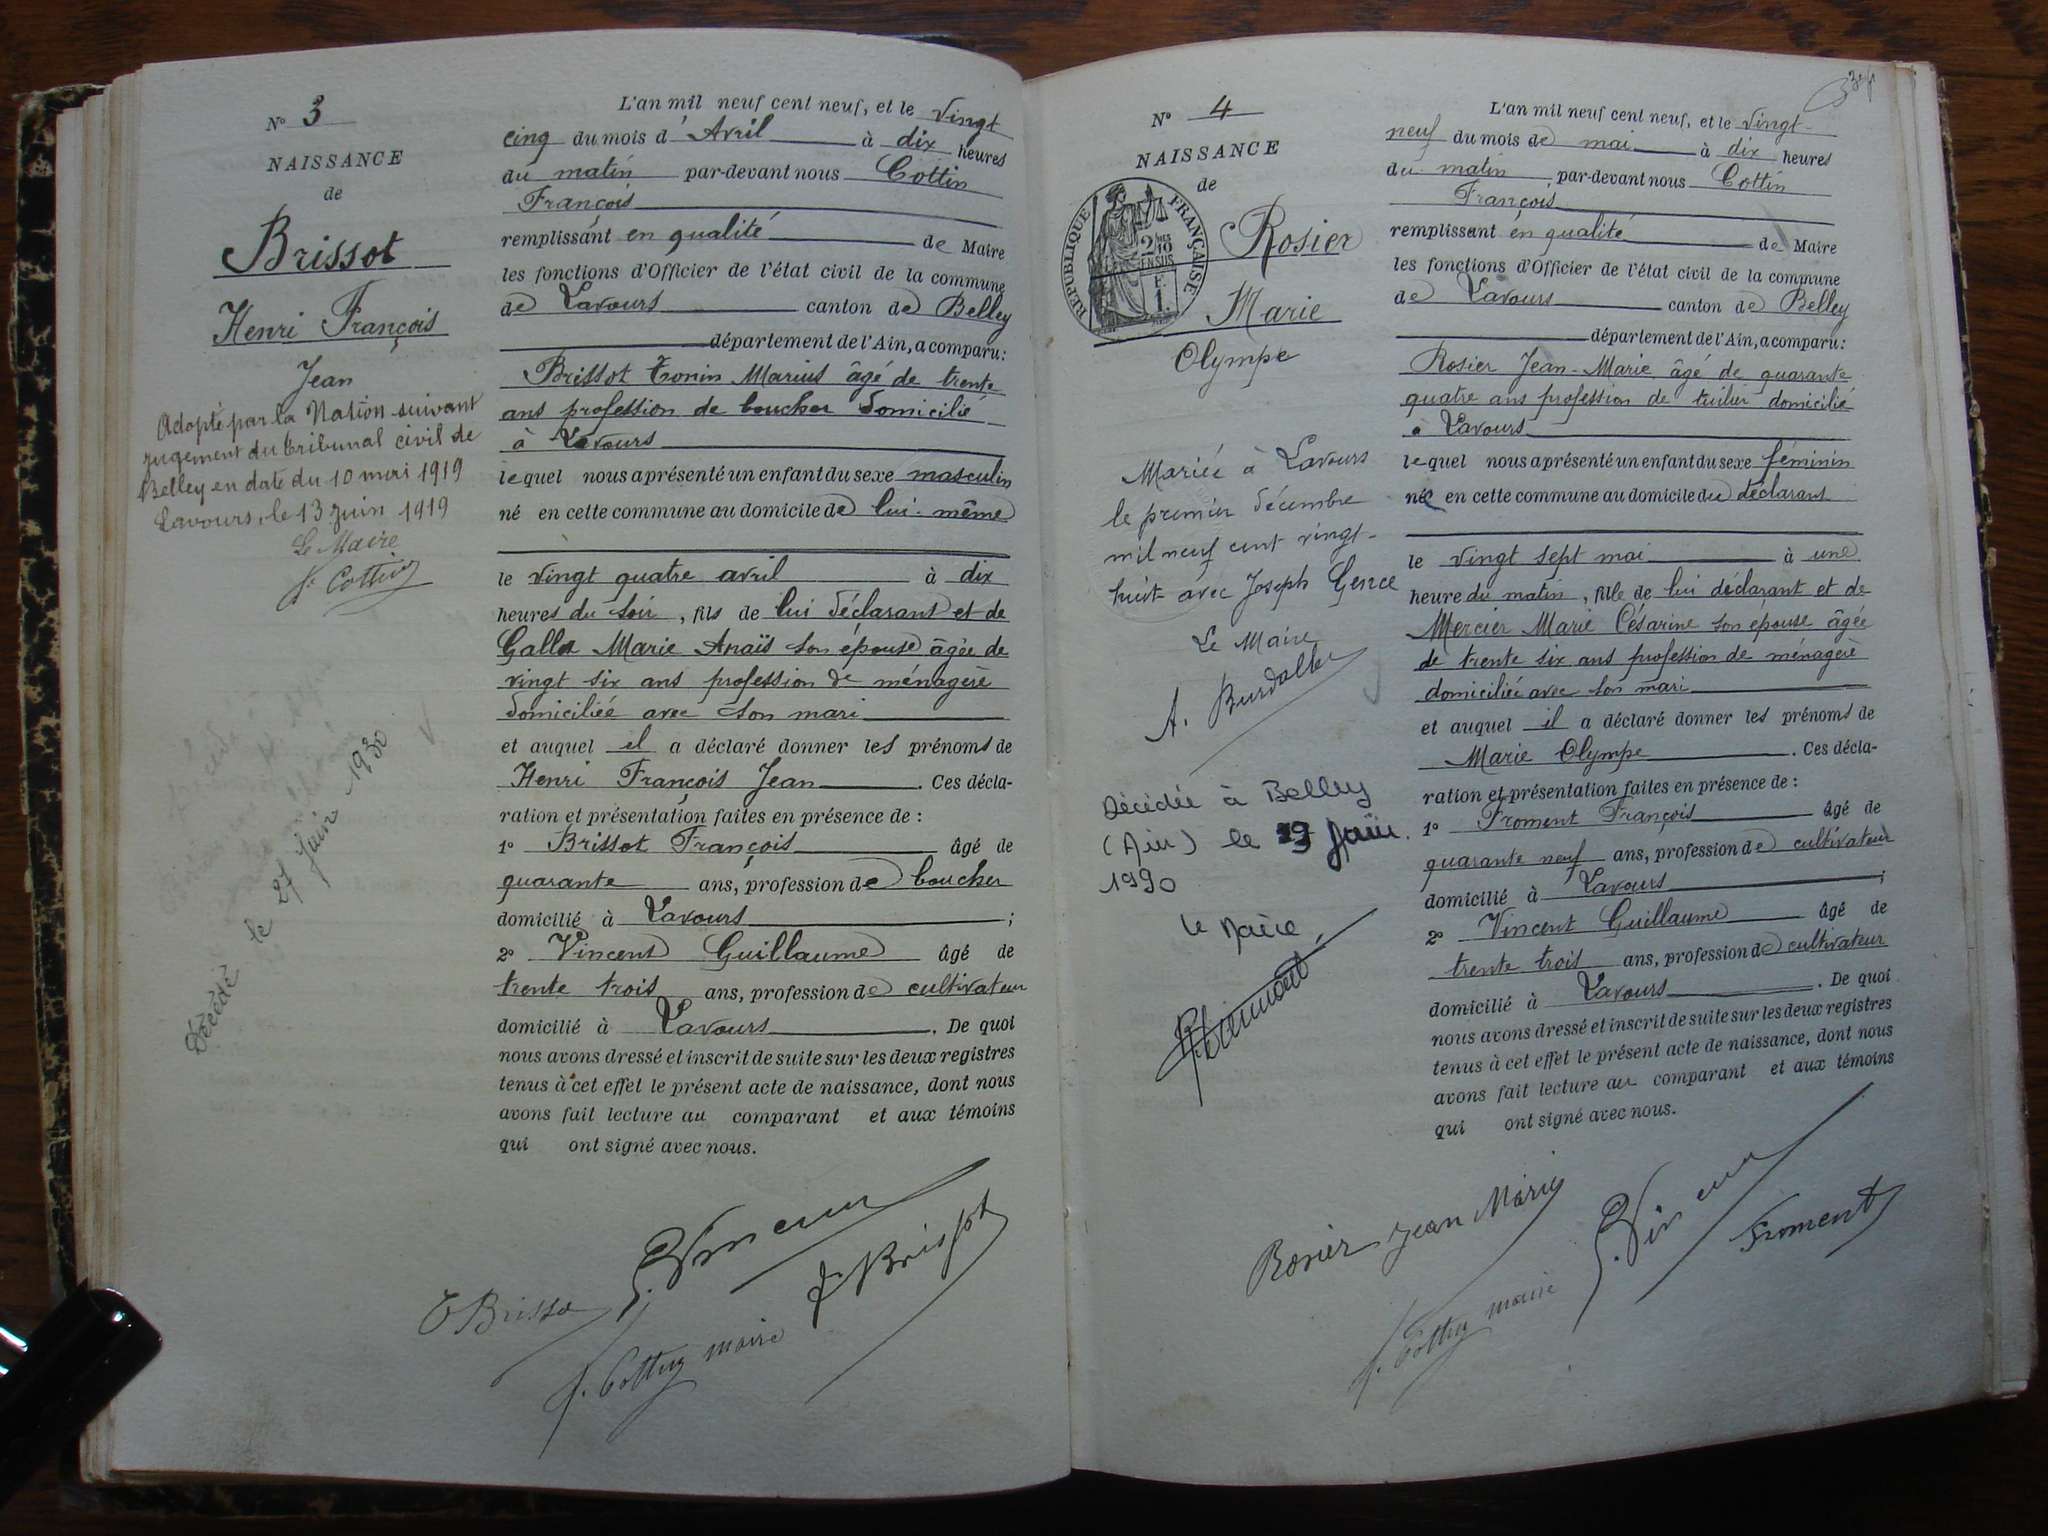 N° 3
NAISSANCE
de
Brissot
Henri François
Jean
Adopté par la Nation suivant
jugement du tribunal civil de
Belley en date du 10 mai 1919
Lavours, le 13 juin 1919
Le Maire
F. Cottin
Décédé le 27 Juin 1930
L'an mil neuf cent neuf, et le vingt
cinq du mois d'Avril à dix heures
du matin par-devant nous Cottin
François
remplissant en qualité de Maire
les fonctions d'Officier de l'état civil de la commune
de Lavours canton de Belley
département de l'Ain, a comparu:
Brissot Tonin Marius âgé de trente
ans profession de boucher domicilié
à Lavours
lequel nous a présenté un enfant du sexe masculin
né en cette commune au domicile de lui-même
le vingt quatre avril à dix
heures du soir, fils de lui déclarant et de
Marie Anaïs son épouse âgée de
vingt six ans profession de ménagère
domiciliée avec son mari
et auquel il a déclaré donner les prénoms de
Henri François Jean. Ces décla-
ration et présentation faites en présence de:
1° Brissot François âgé de
quarante ans, profession de boucher
domicilié à Lavours;
2° Vincent Guillaume âgé de
trente trois ans, profession de cultivateur
domicilié à Lavours. De quoi
nous avons dressé et inscrit de suite sur les deux registres
tenus à cet effet le présent acte de naissance, dont nous
avons fait lecture au comparant et aux témoins
qui ont signé avec nous.
G. Vincent
F. Brissot
T Brissot
F. Cottin maire
N° 4
NAISSANCE
de
RÉPUBLIQUE FRANÇAISE
2 10 MES EN SUS
F. 1.
Rosier
Marie
Olympe
Mariée à Lavours
le premier décembre
mil neuf cent vingt-
huit avec Joseph Gence
Le Maire
Décédée à Belley
(Ain) le 19 Juin
1990
Le Maire,
L'an mil neuf cent neuf, et le vingt-
neuf du mois de mai à dix heures
du matin par-devant nous Cottin
François
remplissant en qualité de Maire
les fonctions d'Officier de l'état civil de la commune
de Lavours canton de Belley
département de l'Ain, a comparu:
Rosier Jean-Marie âgé de quarante
quatre ans profession de tuilier domicilié
à Lavours
lequel nous a présenté un enfant du sexe féminin
née en cette commune au domicile du déclarant
le vingt sept mai à une
heure du matin, fille de lui déclarant et de
Mercier Marie Césarine son épouse âgée
de trente six ans profession de ménagère
domiciliée avec son mari
et auquel il a déclaré donner les prénoms de
Marie Olympe. Ces décla-
ration et présentation faites en présence de:
1° Froment François âgé de
quarante neuf ans, profession de cultivateur
domicilié à Lavours;
2° Vincent Guillaume âgé de
trente trois ans, profession de cultivateur
domicilié à Lavours. De quoi
nous avons dressé et inscrit de suite sur les deux registres
tenus à cet effet le présent acte de naissance, dont nous
avons fait lecture au comparant et aux témoins
qui ont signé avec nous.
Rosier Jean Marie
G. Vincent
Froment
F. Cottin maire